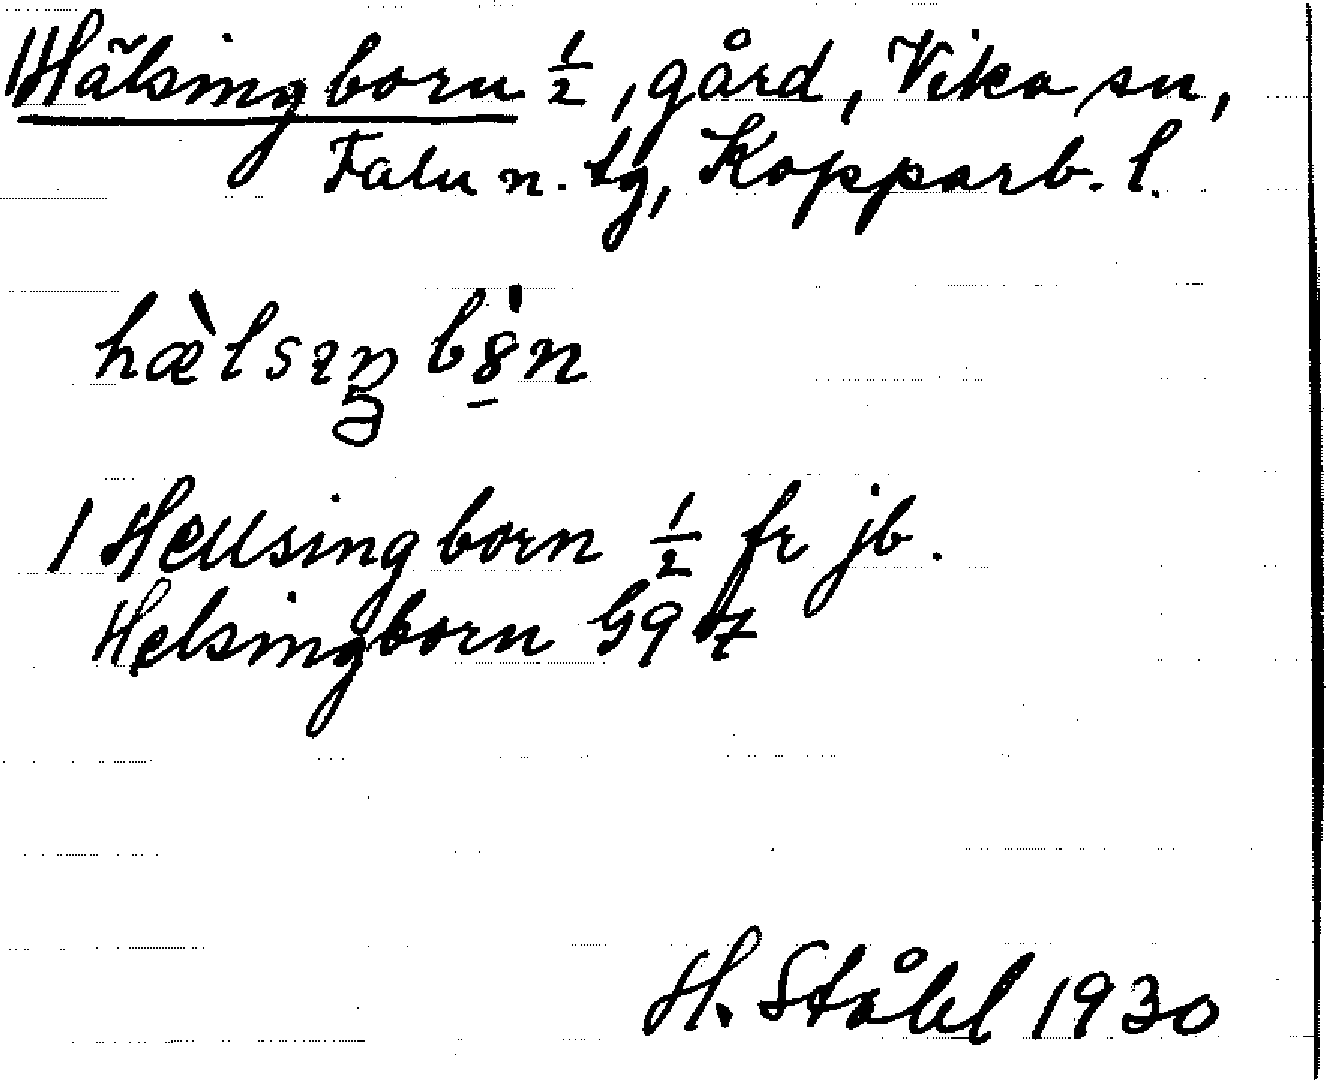 Hälsingborn ½, gård, Vika sn,
Falu n. tg, Kopparb. l.
1 Hellsingborn ½ fr jb.
Helsingborn G97
H. Ståhl 1930